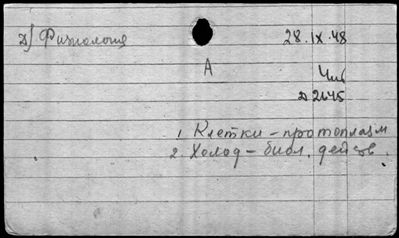 Д) Физиология 28.IX.48
А Чит
Д 2645
1. Клетки – протоплазм
2. Холод – биол. действ.